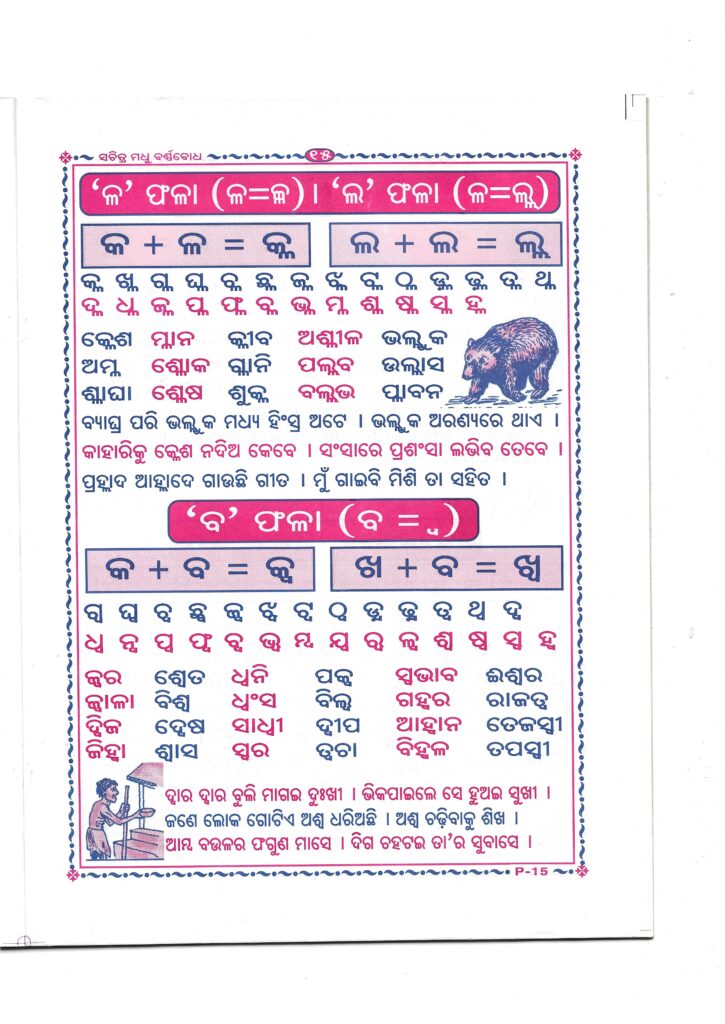 ସଚିତ୍ର ମଧୁ ବର୍ଣ୍ଣବୋଧ
୧୫
‘ଳ’ ଫଳା (ଳ=ଳ୍ଳ)। ‘ଲ’ ଫଳା (ଳ=ଲ୍ଲ)
କ + ଳ = କ୍ଳ ଲ + ଲ = ଲ୍ଲ
କ୍ଳ ଖ୍ଳ ଗ୍ଳ ଘ୍ଳ ଚ୍ଳ ଛ୍ଳ ଜ୍ଳ ଝ୍ଳ ଟ୍ଳ ଠ୍ଳ ଡ୍ଳ ଢ୍ଳ ତ୍ଳ ଥ୍ଳ
ଦ୍ଳ ଧ୍ଳ ଜ୍ଳ ପ୍ଳ ଫ୍ଳ ବ୍ଳ ଭ୍ଳ ମ୍ଳ ଶ୍ଳ ଷ୍ଳ ସ୍ଳ ହ୍ଳ
କ୍ଳେଶ ମ୍ଳାନ କ୍ଳୀବ ଅଶ୍ଳୀଳ ଭଲ୍ଲୁକ
ଅମ୍ଳ ଶ୍ଳୋକ ଗ୍ଳାନି ପଲ୍ଲବ ଉଲ୍ଲାସ
ଶ୍ଳାଘା ଶ୍ଳେଷ ଶୁକ୍ଳ ବଲ୍ଲଭ ପ୍ଳାବନ
ବ୍ୟାଘ୍ର ପରି ଭଲ୍ଲୁକ ମଧ୍ୟ ହିଂସ୍ର ଅଟେ । ଭଲ୍ଲୁକ ଅରଣ୍ୟରେ ଥାଏ ।
କାହାରିକୁ କ୍ଳେଶ ନଦିଅ କେବେ । ସଂସାରେ ପ୍ରଶଂସା ଲଭିବ ତେବେ ।
ପ୍ରହ୍ଲାଦ ଆହ୍ଲାଦେ ଗାଉଛି ଗୀତ । ମୁଁ ଗାଇବି ମିଶି ତା ସହିତ ।
‘ବ’ ଫଳା (ବ = ୍ବ)
କ + ବ = କ୍ୱ ଖ + ବ = ଖ୍ୱ
ଗ୍ୱ ଘ୍ୱ ଚ୍ୱ ଛ୍ୱ ଜ୍ୱ ଝ୍ୱ ଟ୍ୱ ଠ୍ୱ ଡ୍ୱ ଢ୍ୱ ତ୍ୱ ଥ୍ୱ ଦ୍ୱ
ଧ୍ୱ ନ୍ୱ ପ୍ୱ ଫ୍ୱ ବ୍ୱ ଭ୍ୱ ମ୍ୱ ଯ୍ୱ ର୍ୱ ଳ୍ୱ ଶ୍ୱ ଷ୍ୱ ସ୍ୱ ହ୍ୱ
ଜ୍ୱର ଶ୍ୱେତ ଧ୍ୱନି ପକ୍ୱ ସ୍ୱଭାବ ଈଶ୍ୱର
ଜ୍ୱାଳା ବିଶ୍ୱ ଧ୍ୱଂସ ବିଲ୍ୱ ଗହ୍ୱର ରାଜତ୍ୱ
ଦ୍ୱିଜ ଦ୍ୱେଷ ସାଧ୍ୱୀ ଦ୍ୱୀପ ଆହ୍ୱାନ ତେଜସ୍ୱୀ
ଜିହ୍ୱା ଶ୍ୱାସ ସ୍ୱର ତ୍ୱଚା ବିହ୍ୱଳ ତପସ୍ୱୀ
ଦ୍ୱାର ଦ୍ୱାର ବୁଲି ମାଗଇ ଦୁଃଖୀ । ଭିକପାଇଲେ ସେ ହୁଅଇ ସୁଖୀ ।
ଜଣେ ଲୋକ ଗୋଟିଏ ଅଶ୍ୱ ଧରିଅଛି । ଅଶ୍ୱ ଚଢ଼ିବାକୁ ଶିଖ ।
ଆମ୍ଭ ବଉଳର ଫଗୁଣ ମାସେ । ଦିଗ ଚହଟଇ ତା’ର ସୁବାସେ ।
P-15